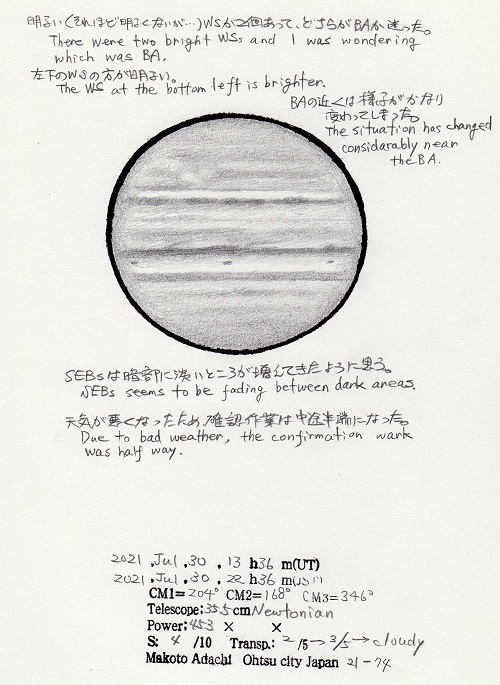 明るい(それほど明るくないが…)WSが2個あって、どちらがBAか迷った。
There were two bright WSs and I was wondering
which was BA.
左下のWSの方が明るい。
The WS at the bottom left is brighter.
BAの近くは様子がかなり
変わってしまった。
The situation has changed
considarably near
the BA.
SEBsは暗部に淡いところが増えてきたように思う。
SEBs seems to be fading between dark areas.
天気が悪くなったため、確認作業は中途半端になった。
Due to bad weather, the confirmation wark
was half way.
2021 .Jul .30 . 13 h36 m(UT)
2021 .Jul .30 . 22 h36 m(JST)
CM1=204° CM2=168° CM3=346°
Telescope:35.5cm Newtonian
Power:453 × ×
S: 4 /10 Transp.: 2 /5→3/5→cloudy
Makoto Adachi Ohtsu city Japan 21-74